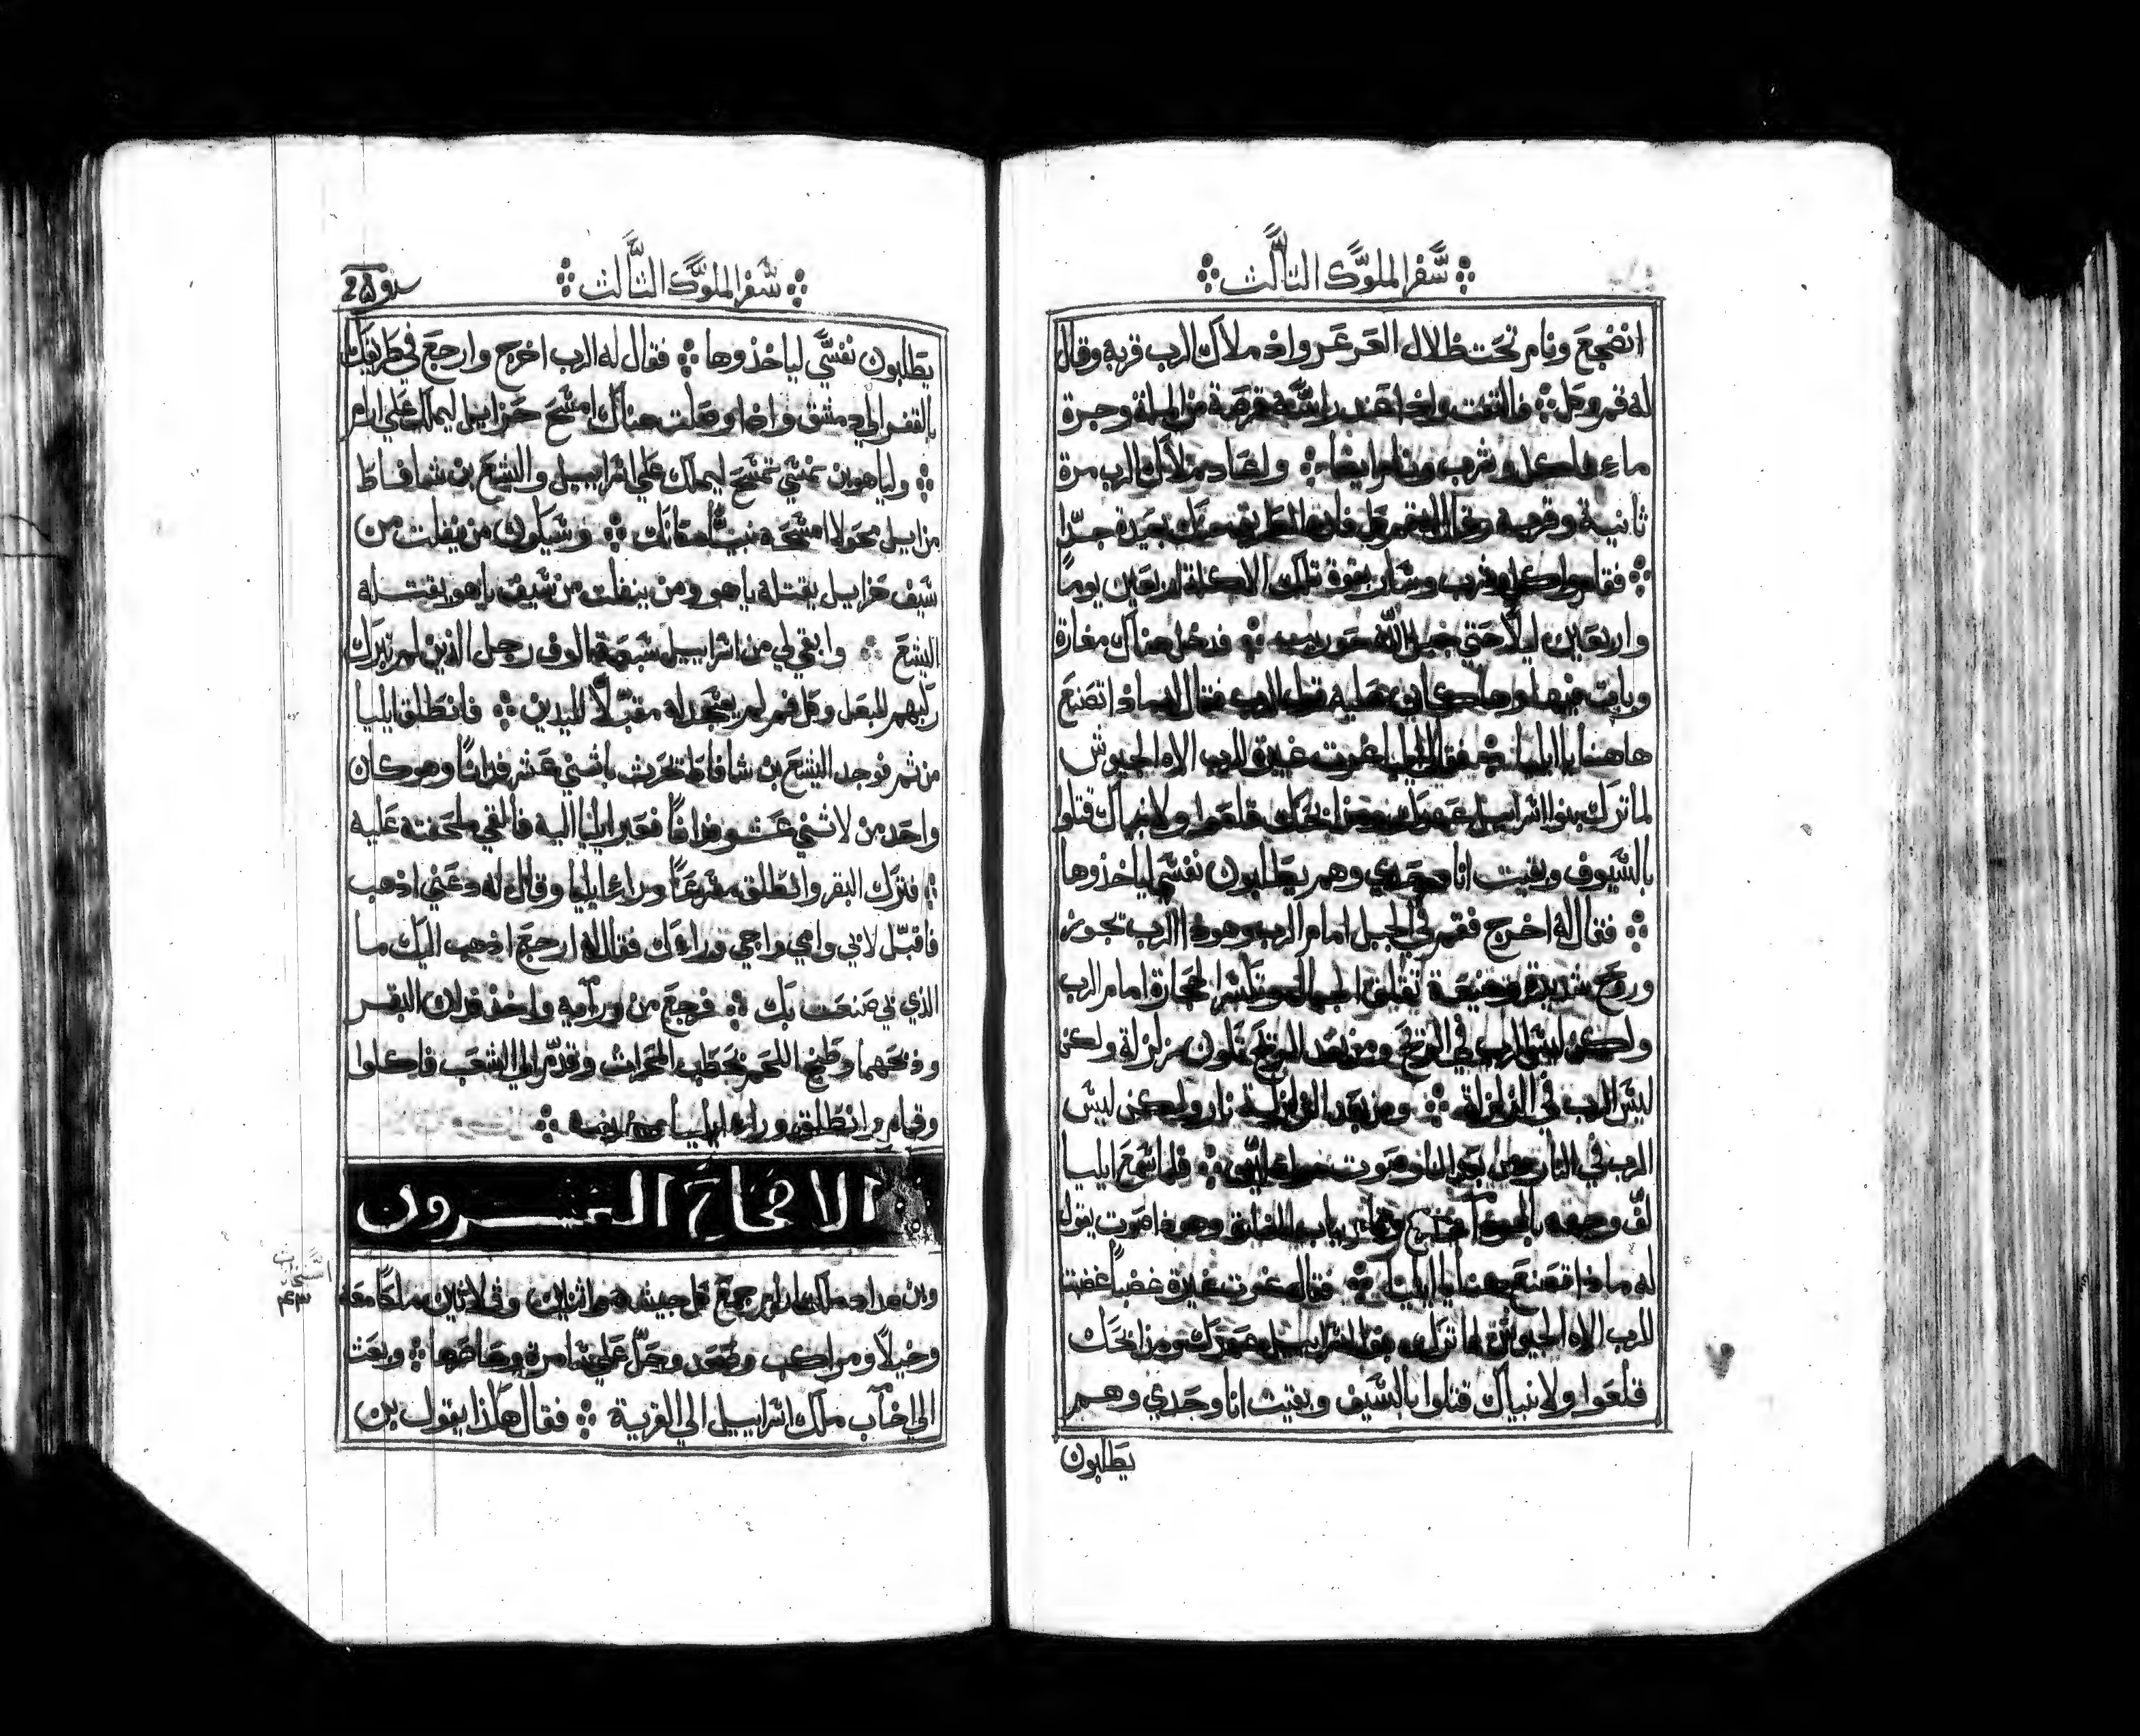 سفر الملوك الثالث
انضجع ونام تحت ظلال العرعر واذ ملاك الرب قربه وقال
له قم وكل فالتفت واذا عند راسه قرصة من الملة وجرة
ماء فاكل وشرب ونام ايضا واعاد ملاك الرب مرة
ثانية وقربه وقال له قم كل فان الطريق بعيدة جدا
فقام واكل وشرب وسار بقوة تلك الاكلة اربعين يوما
واربعين ليلا حتي جبل الله حوريب فدخل هناك مغارة
وبات فيها قول الرب فقال له ماذا تصنع
هاهنا يا ايليا فقال ايليا غرت غيرة للرب الاه الجيوش
لما ترك بنوا اسراييل عهدك ومذابحك قلعوا ولانبياك قتلوا
بالسيوف وبقيت انا وحدي وهم يطلبون نفسي لياخذوها
فقال له اخرج فقم في الجبل امام الرب وهوذا الرب تجوز
وروح شديدة تقلق الجبال وتكسر الحجارة امام الرب
ولكن ليس الرب في الريح ومن بعد الريح تكون زلزلة ولكن
ليس الرب في الزلزلة ومن بعد الزلزلة نار ولكن ليس
الرب في النار ومن بعد النار صوت فلما سمع ايليا
لف وجهه وخرج وقام بباب وهوذا صوت يقول
له ماذا تصنع هنا يا ايليا فقال غرت غيرة غضبا غضبت
للرب الاه الجيوش لما ترك بنوا اسراييل عهدك ومذابحك
قلعوا ولانبياك قتلوا بالسيف وبقيت انا وحدي وهم
يطلبون
سفر الملوك الثالث
يطلبون نفسي لياخذوها فقال له الرب اخرج وارجع في طريقك
بالقفر الي دمشق واذا وصلت هناك امسح حزاييل ليملك علي ارام
ولياهو بن نمشي تمسح ليملك علي اسراييل واليشع بن شافاط
من ابيل محولا امسحه نبيا مكانك وسيكون من يفلت من
سيف حزاييل يقتله ياهو ومن ينفلت من سيف ياهو يقتله
اليشع وابقي لي من اسراييل سبعة الوف رجل الذين لم تبرك
ركبهم للبعل وكل فم لم يسجد له مقبلا لليدين فانطلق ايليا
من ثم فوجد اليشع بن شافاط تحرث باثني عشر فدانا وهو كان
واحد من لاثني عشر فدانا فعبر ايليا اليه فالقي ملحفته عليه
فترك البقر وانطلق مسرعا وراء ايليا وقال له دعني اذهب
فاقبل لابي وامي واجي وراءك فقال له ارجع اذهب اليك ما
الذي لي صنعت بك فرجع من ورآيه واخذ فدان البقر
وذبحهما وطبخ اللحم بحطب المحراث وقدم الي الشعب فاكلوا
وقام وانطلق وراء ايليا
الاصحاح العشرون
وبن هداد ملك ارام جمع كل جيشه واثنين وثلاثين ملكا معه
وخيلا ومراكب وصعد وحل علي شامرة وحاصرها وبعث
الي اخاب ملك اسراييل الي القرية فقال هكذا يقول بن